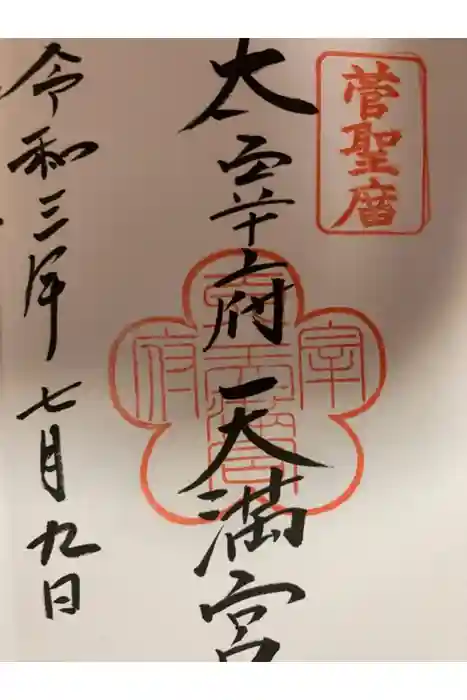 菅聖廟
太宰府天満宮
令和三年七月九日